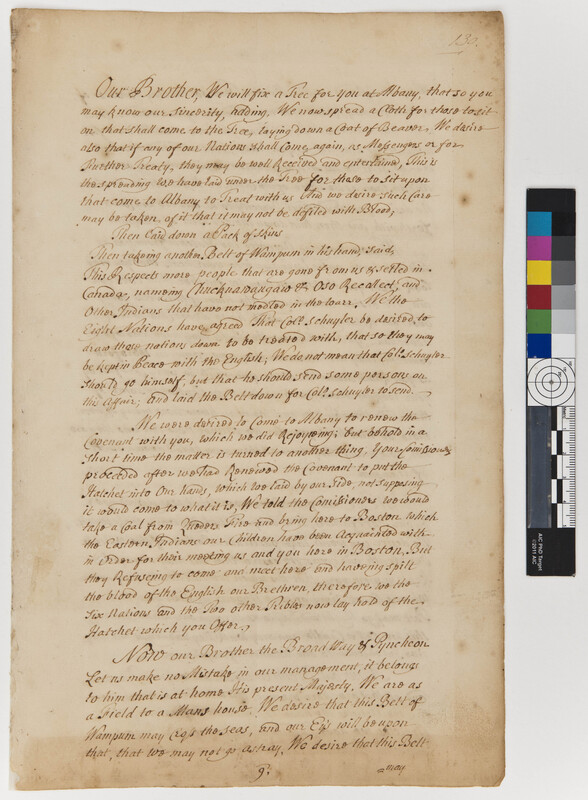 130.
Our Brother, We will fix a Tree for you at Albany, that so you
may know our Sincerity, adding, We now spread a Cloth for those to sit
on that shall come to the Tree, laying down a Coat of Beaver. We desire
also that if any of our Nations shall come again, as Messengers or for
Further Treaty, they may be well Received and entertained, This is
the spreading we have laid under the Tree for those to sit upon
that come to Albany to Treat with us And we desire such Care
may be taken of it that it may not be defiled with Blood,
Then Laid down a Pack of Skins
Then takeing another Belt of Wampum in his hand, Said,
This Respects more people that are gone from us & setled in
Canada, nameing & Oso Recollect, and
Other Indians that have not medled in the warr. We the
Eight Nations have agreed That Colo. Schuyler be desired to
draw those nations down to be treated with, that so they may
be kept in Peace with the English; We do not mean that Colo. Schuyler
should go himself, but that he should send some person on
this Affair; and laid the Belt down for Colo. Schuyler to send.
We were desired to Come to Albany to renew the
Covenant with you, which we did Rejoyceing; but behold in a
short time the matter is turned to another thing. Your
proceeded after we had Renewed the Covenant to put the
Hatchet into Our hands, which we laid by our side, not supposing
it would come to what it is, We told the Comissioners we would
take a Coal from Fire and bring here to Boston which
the Eastern Indians our Children have been Acquainted with
in Order for their meeting us and you here in Boston. But
they Refuseing to come and meet here and haveing spilt
the blood of the English our Brethren, therefore we the
Six Nations and the Two other Tribes now lay hold of the
Hatchet which you Offer.
Now our Brother the Broad Way & Pyncheon
Let us make no Mistake in our management, it belongs
to him that is at home His present Majesty. We are as
a Field to a Mans house We desire that this Belt of
Wampum may cross the seas, and our Eys will be upon
that, that we may not go astray, We desire that this Belt
9:
may